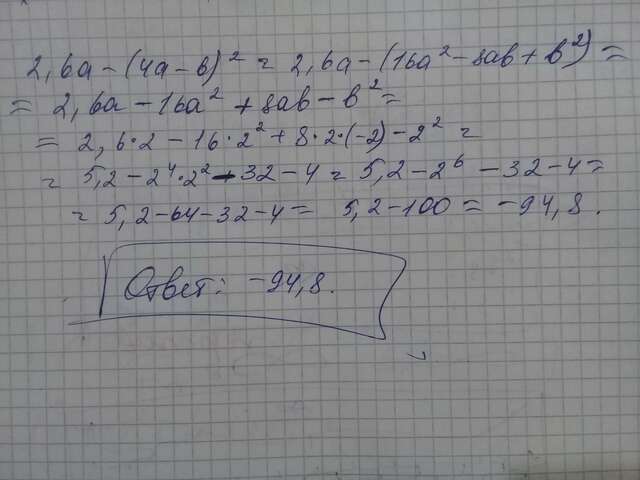 2,6a-(4a-в)² = 2,6a-(16a²-8aв+в²)=
= 2,6a-16a²+8aв-в²=
= 2,6·2-16·2²+8·2·(-2)-2² =
= 5,2-2⁴·2²-32-4 = 5,2-2⁶-32-4=
= 5,2-64-32-4= 5,2-100=-94,8.
Ответ: -94,8.